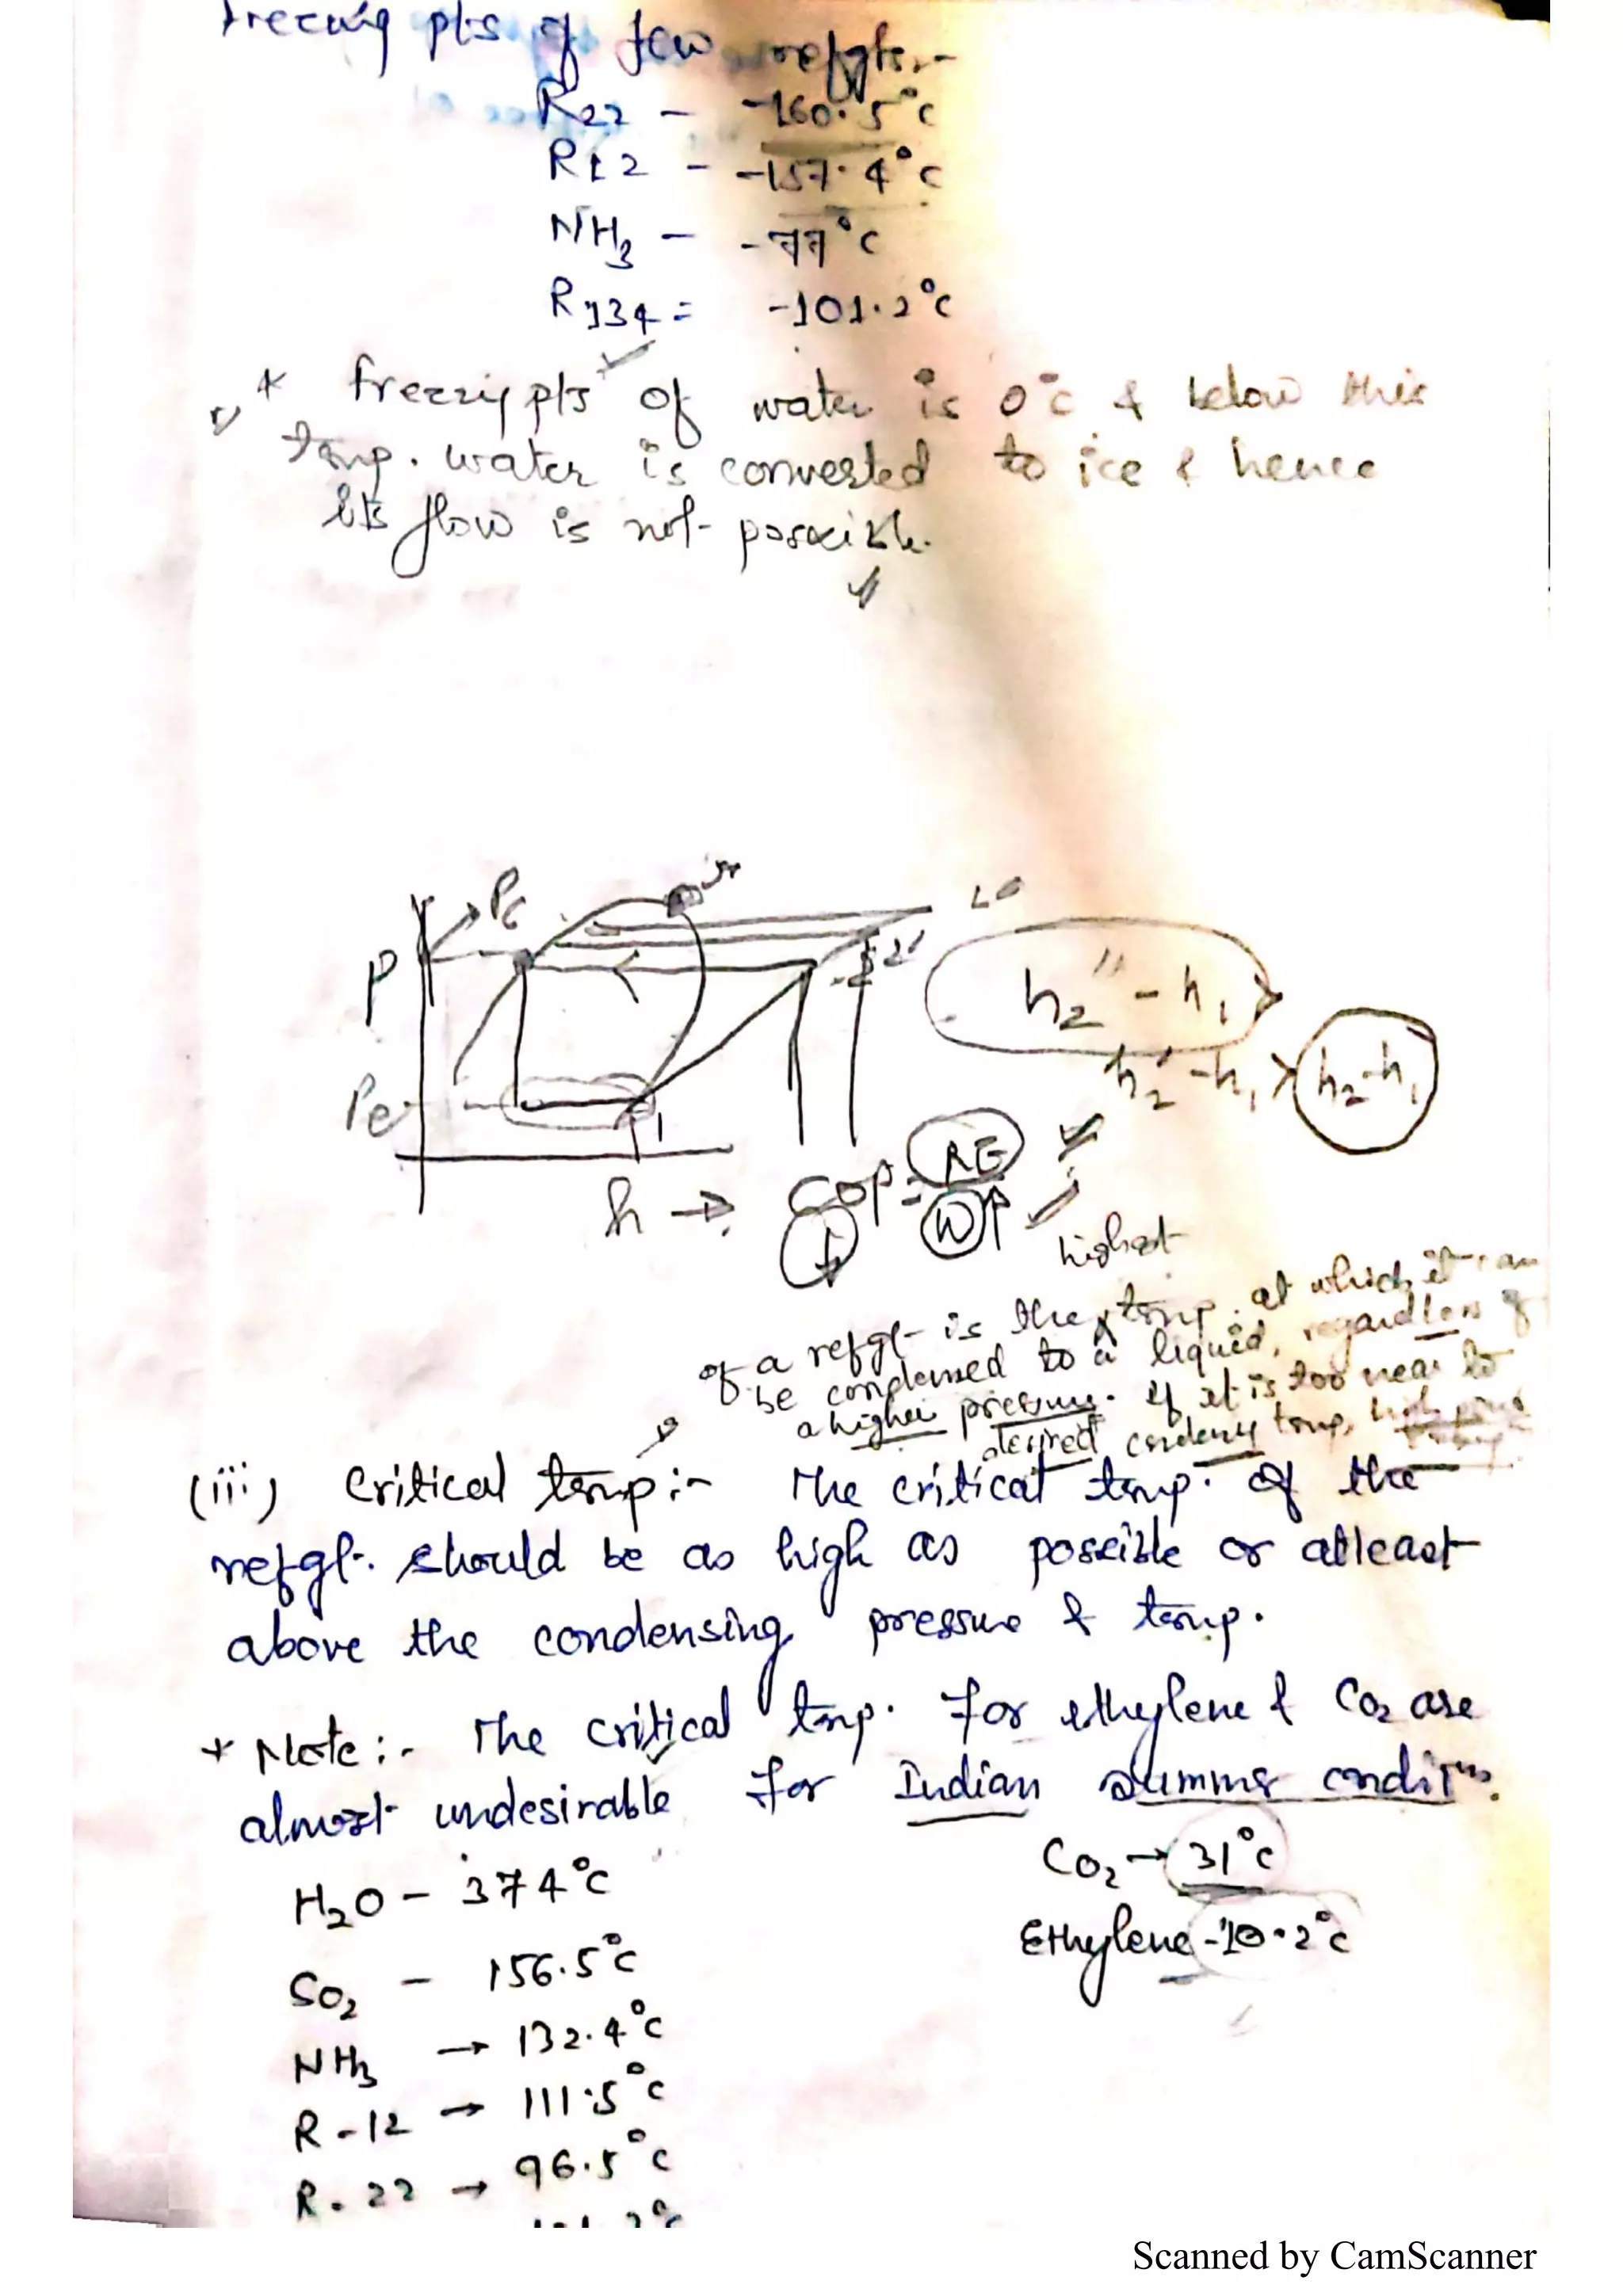 freezing pts of few refgts.-
R22 - -160.5°C
R12 - -157.4°C
NH3 - -77°C
R134 = -101.2°C
* freezig pts of water is 0°C & below this
temp. water is converted to ice & hence
its flow is not possible.
Pc
P
2"
2'
2
h2" - h1 >
h2' - h1 > h2-h1
Pe
1
h → COP = RE
↓ W↑
highest
of a refgt is the temp. at which it can
be condensed to a liquid, regardless of
a higher pressure. if it is too near to
desired condeng temp, high
(iii) Critical temp:- The critical temp. of the
refgt. should be as high as possible or atleast
above the condensing pressure & temp.
* Note:- The critical tmp. for ethylene & CO2 are
almost undesirable for Indian summer condi
CO2 → 31°C
H2O - 374°C
Ethylene - 10.2°C
SO2 - 156.5°C
NH3 → 132.4°C
R-12 → 111.5°C
R-22 → 96.5°C
Scanned by CamScanner